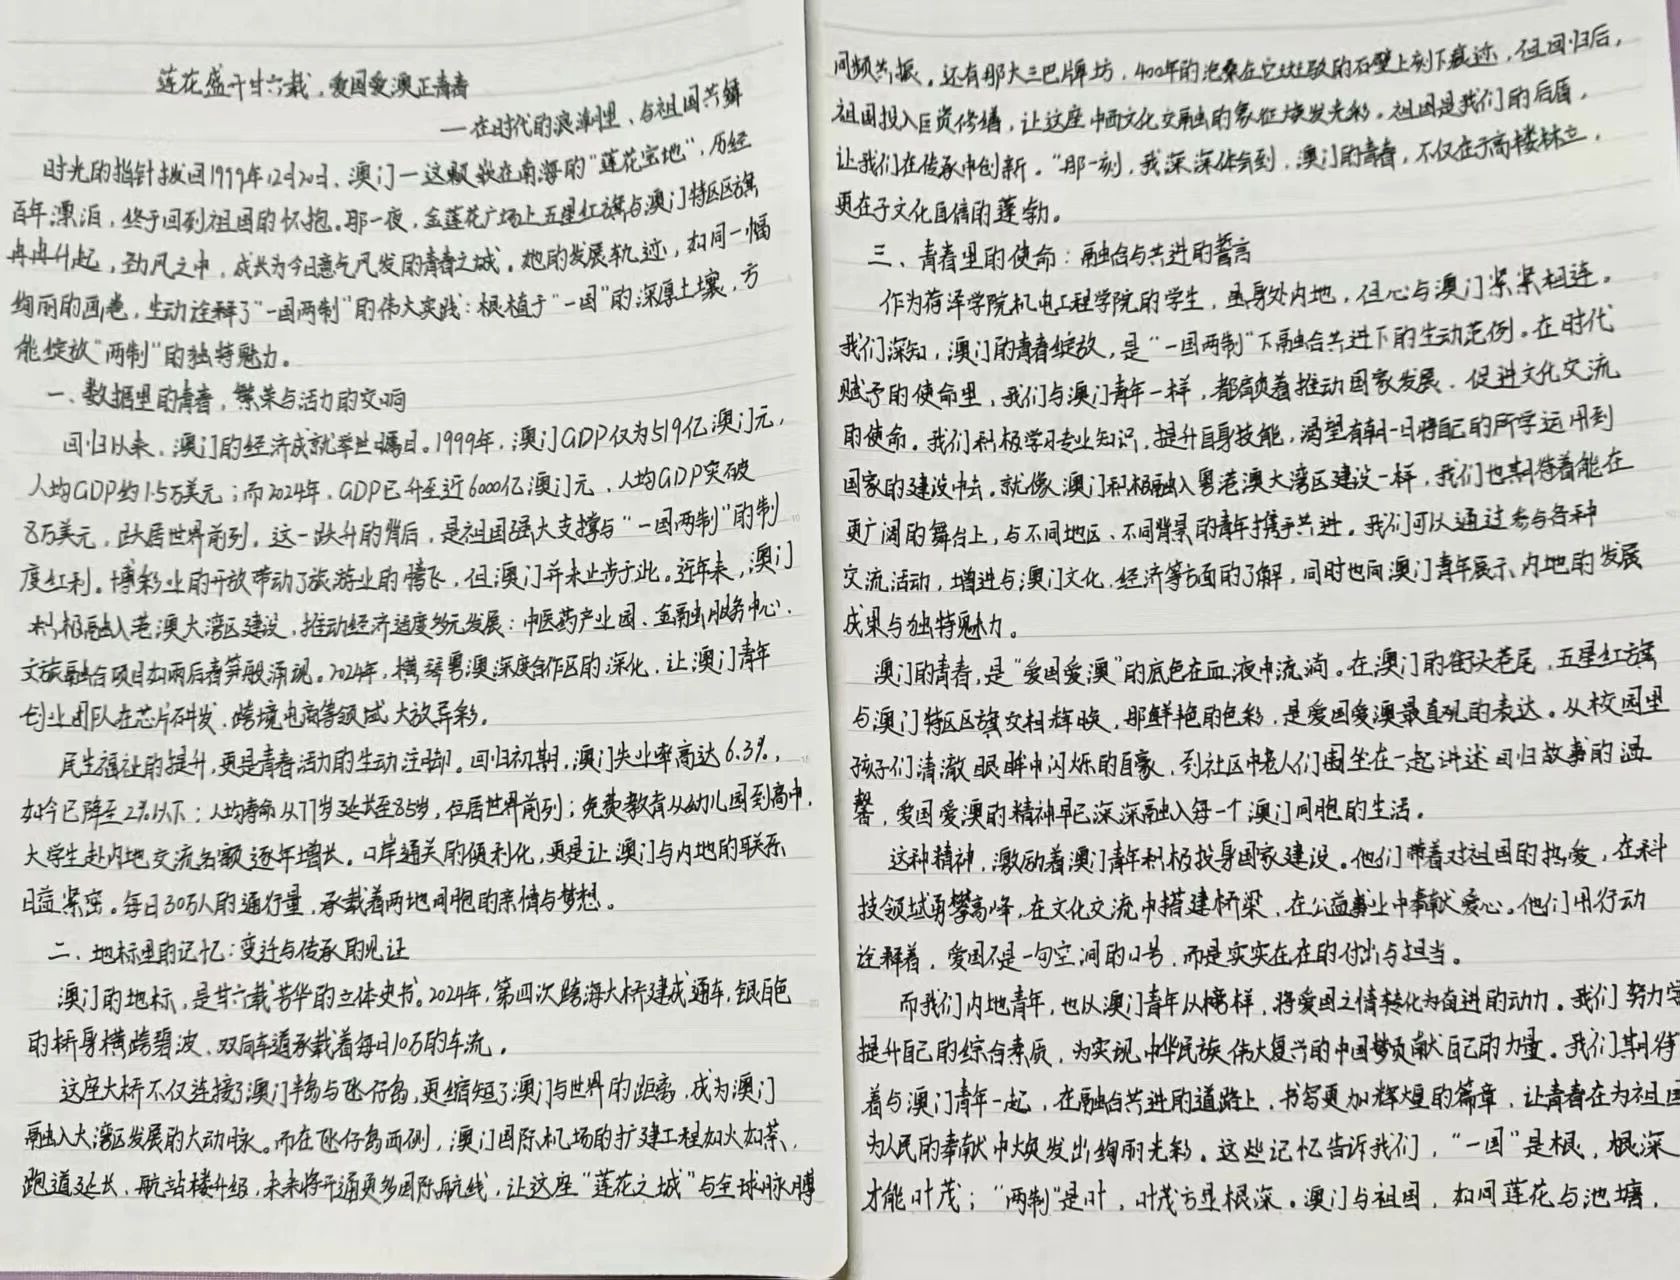 莲花盛开廿六载，爱国爱澳正青春
—在时代的浪潮里、与祖国共鸣
时光的指针拨回1999年12月20日、澳门—这颗嵌在南海的“莲花宝地”，历经
百年漂泊，终于回到祖国的怀抱。那一夜，金莲花广场上五星红旗与澳门特区区旗
冉冉升起，劲风之中，成长为今日意气风发的青春之城。她的发展轨迹，如同一幅
绚丽的画卷，生动诠释了“一国两制”的伟大实践：根植于“一国”的深厚土壤，方
能绽放“两制”的独特魅力。
一、数据里的青春，繁荣与活力的交响
回归以来，澳门的经济成就举世瞩目。1999年，澳门GDP仅为519亿澳门元，
人均GDP约1.5万美元；而2024年，GDP已升至近6000亿澳门元，人均GDP突破
8万美元，跃居世界前列。这一跃升的背后，是祖国强大支撑与“一国两制”的制
度红利。博彩业的开放带动了旅游业的腾飞，但澳门并未止步于此。近年来，澳门
积极融入老澳大湾区建设，推动经济适度多元发展：中医药产业园、金融服务中心、
文旅融合项目如雨后春笋般涌现。2024年，横琴粤澳深度合作区的深化，让澳门青年
创业团队在芯片研发，跨境电商等领域大放异彩。
民生福祉的提升，更是青春活力的生动注脚。回归初期，澳门失业率高达6.3%，
如今已降至2%以下；人均寿命从77岁延长至85岁，位居世界前列；免费教育从幼儿园到高中，
大学生赴内地交流名额逐年增长。口岸通关的便利化，更是让澳门与内地的联系
日益紧密。每日30万人的通行量，承载着两地同胞的亲情与梦想。
二、地标里的记忆：变迁与传承的见证
澳门的地标，是廿六载芳华的立体史书。2024年，第四次跨海大桥建成通车，银白色
的桥身横跨碧波，双向车道承载着每日10万的车流。
这座大桥不仅连接了澳门半岛与氹仔岛，更缩短了澳门与世界的距离，成为澳门
融入大湾区发展的大动脉。而在氹仔岛西侧，澳门国际机场的扩建工程如火如荼，
跑道延长，航站楼升级，未来将开通更多国际航线，让这座“莲花之城”与全球脉搏
同频共振。还有那大三巴牌坊，400年的沧桑在它斑驳的石壁上刻下痕迹，但回归后，
祖国投入巨资修缮，让这座中西文化交融的象征焕发光彩。祖国是我们的后盾，
让我们在传承中创新。“那一刻，我深深体会到，澳门的青春，不仅在于高楼林立，
更在于文化自信的蓬勃。
三、青春里的使命：融合与共进的誓言
作为菏泽学院机电工程学院的学生，虽身处内地，但心与澳门紧紧相连。
我们深知，澳门的青春绽放，是“一国两制”下融合共进下的生动范例。在时代
赋予的使命里，我们与澳门青年一样，都肩负着推动国家发展、促进文化交流
的使命。我们积极学习专业知识，提升自身技能，渴望有朝一日将自己的所学运用到
国家的建设中去。就像澳门积极融入粤港澳大湾区建设一样，我们也期待着能在
更广阔的舞台上，与不同地区、不同背景的青年携手共进。我们可以通过参与各种
交流活动，增进与澳门文化、经济等方面的了解，同时也向澳门青年展示内地的发展
成果与独特魅力。
澳门的青春，是“爱国爱澳”的底色在血液中流淌。在澳门的街头巷尾，五星红旗
与澳门特区区旗交相辉映，那鲜艳的色彩，是爱国爱澳最直观的表达。从校园里
孩子们清澈眼眸中闪烁的自豪，到社区中老人们围坐在一起讲述回归故事的温
馨，爱国爱澳的精神早已深深融入每一个澳门同胞的生活。
这种精神，激励着澳门青年积极投身国家建设。他们带着对祖国的热爱，在科
技领域勇攀高峰，在文化交流中搭建桥梁，在公益事业中奉献爱心。他们用行动
诠释着，爱国不是一句空洞的口号，而是实实在在的付出与担当。
而我们内地青年，也以澳门青年以榜样，将爱国之情转化为奋进的动力。我们努力学
提升自己的综合素质，为实现中华民族伟大复兴的中国梦贡献自己的力量。我们期待
着与澳门青年一起，在融合共进的道路上，书写更加辉煌的篇章，让青春在为祖国
为人民的奉献中焕发出绚丽光彩。这些记忆告诉我们，“一国”是根，根深
才能叶茂；“两制”是叶，叶茂方显根深。澳门与祖国，如同莲花与池塘，